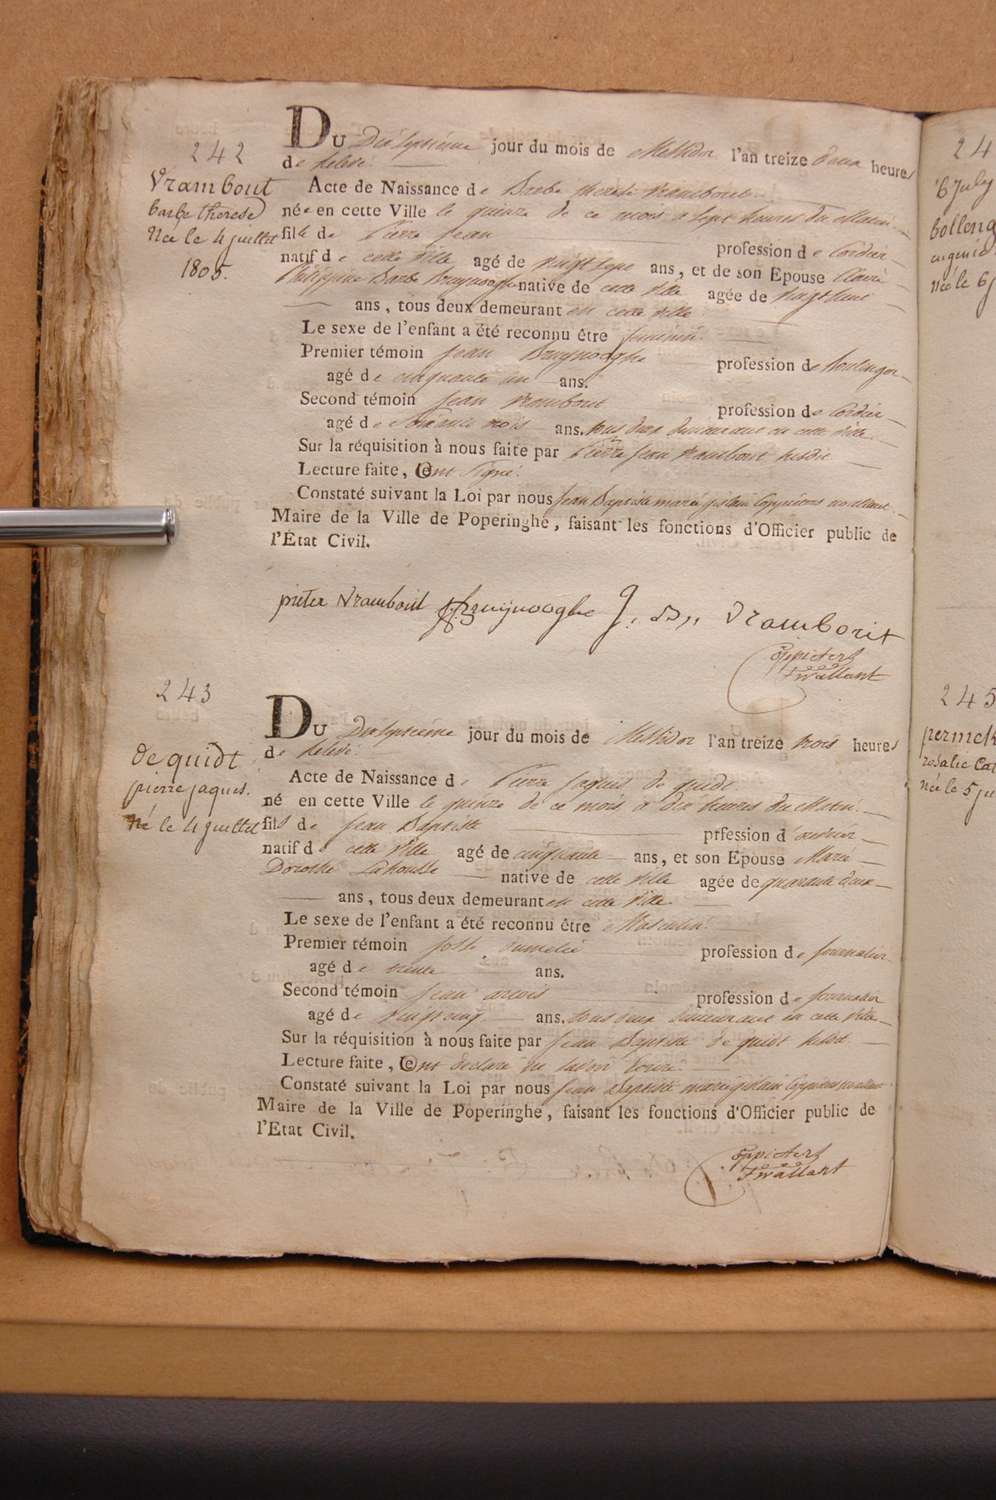 242
Vrambout
barbe therese
Née le 4 juillet
1805.
DU Dixseptieme jour du mois de Messidor l'an treize Onze heures
de relevé.
Acte de Naissance de Barbe therese vrambout
née en cette Ville le quinze de ce mois a sept heures du Matin
fille de Pierre Jean profession de Cordier
natif de cette Ville agé de vingt sept ans, et de son Epouse Marie
Philippine Barbe Bruynooghe native de cette Ville agée de vingt huit
ans, tous deux demeurant en cette Ville
Le sexe de l'enfant a été reconnu être feminin.
Premier témoin Jean Bruynooghe profession de boulenger
agé de cinquante un ans.
Second témoin Jean Vrambout profession de Cordier
agé de soixante trois ans. tous deux demeurant en cette Ville
Sur la réquisition à nous faite par Pierre Jean Vrambout susdit
Lecture faite, Ont signé.
Constaté suivant la Loi par nous Jean Baptiste marie
Maire de la Ville de Poperinghe, faisant les fonctions d'Officier public de
l'État Civil.
pieter Vrambout Bruynooghe J. Vrambout
243
de quidt
pierre jaques.
Né le 4 juillet
DU Dixseptieme jour du mois de Messidor l'an treize trois heures
de relevé.
Acte de Naissance de Pierre Jaques de quidt
né en cette Ville le quinze de ce mois a dix heures du Matin
fils de Jean Baptiste prfession d'
natif de cette Ville agé de cinquante ans, et son Epouse Marie
Dorothe Lahousse native de cette Ville agée de quarante deux
ans, tous deux demeurant en cette Ville
Le sexe de l'enfant a été reconnu être Masculin
Premier témoin profession de Journalier
agé de trente ans.
Second témoin Jean profession de Journalier
agé de vingt cinq ans. tous deux demeurant en cette Ville
Sur la réquisition à nous faite par Jean Baptiste de quidt susdit
Lecture faite, Ont declaré ne savoir Ecrire.
Constaté suivant la Loi par nous Jean Baptiste marie
Maire de la Ville de Poperinghe, faisant les fonctions d'Officier public de
l'Etat Civil.
24
6 July
245
née le 5 ju